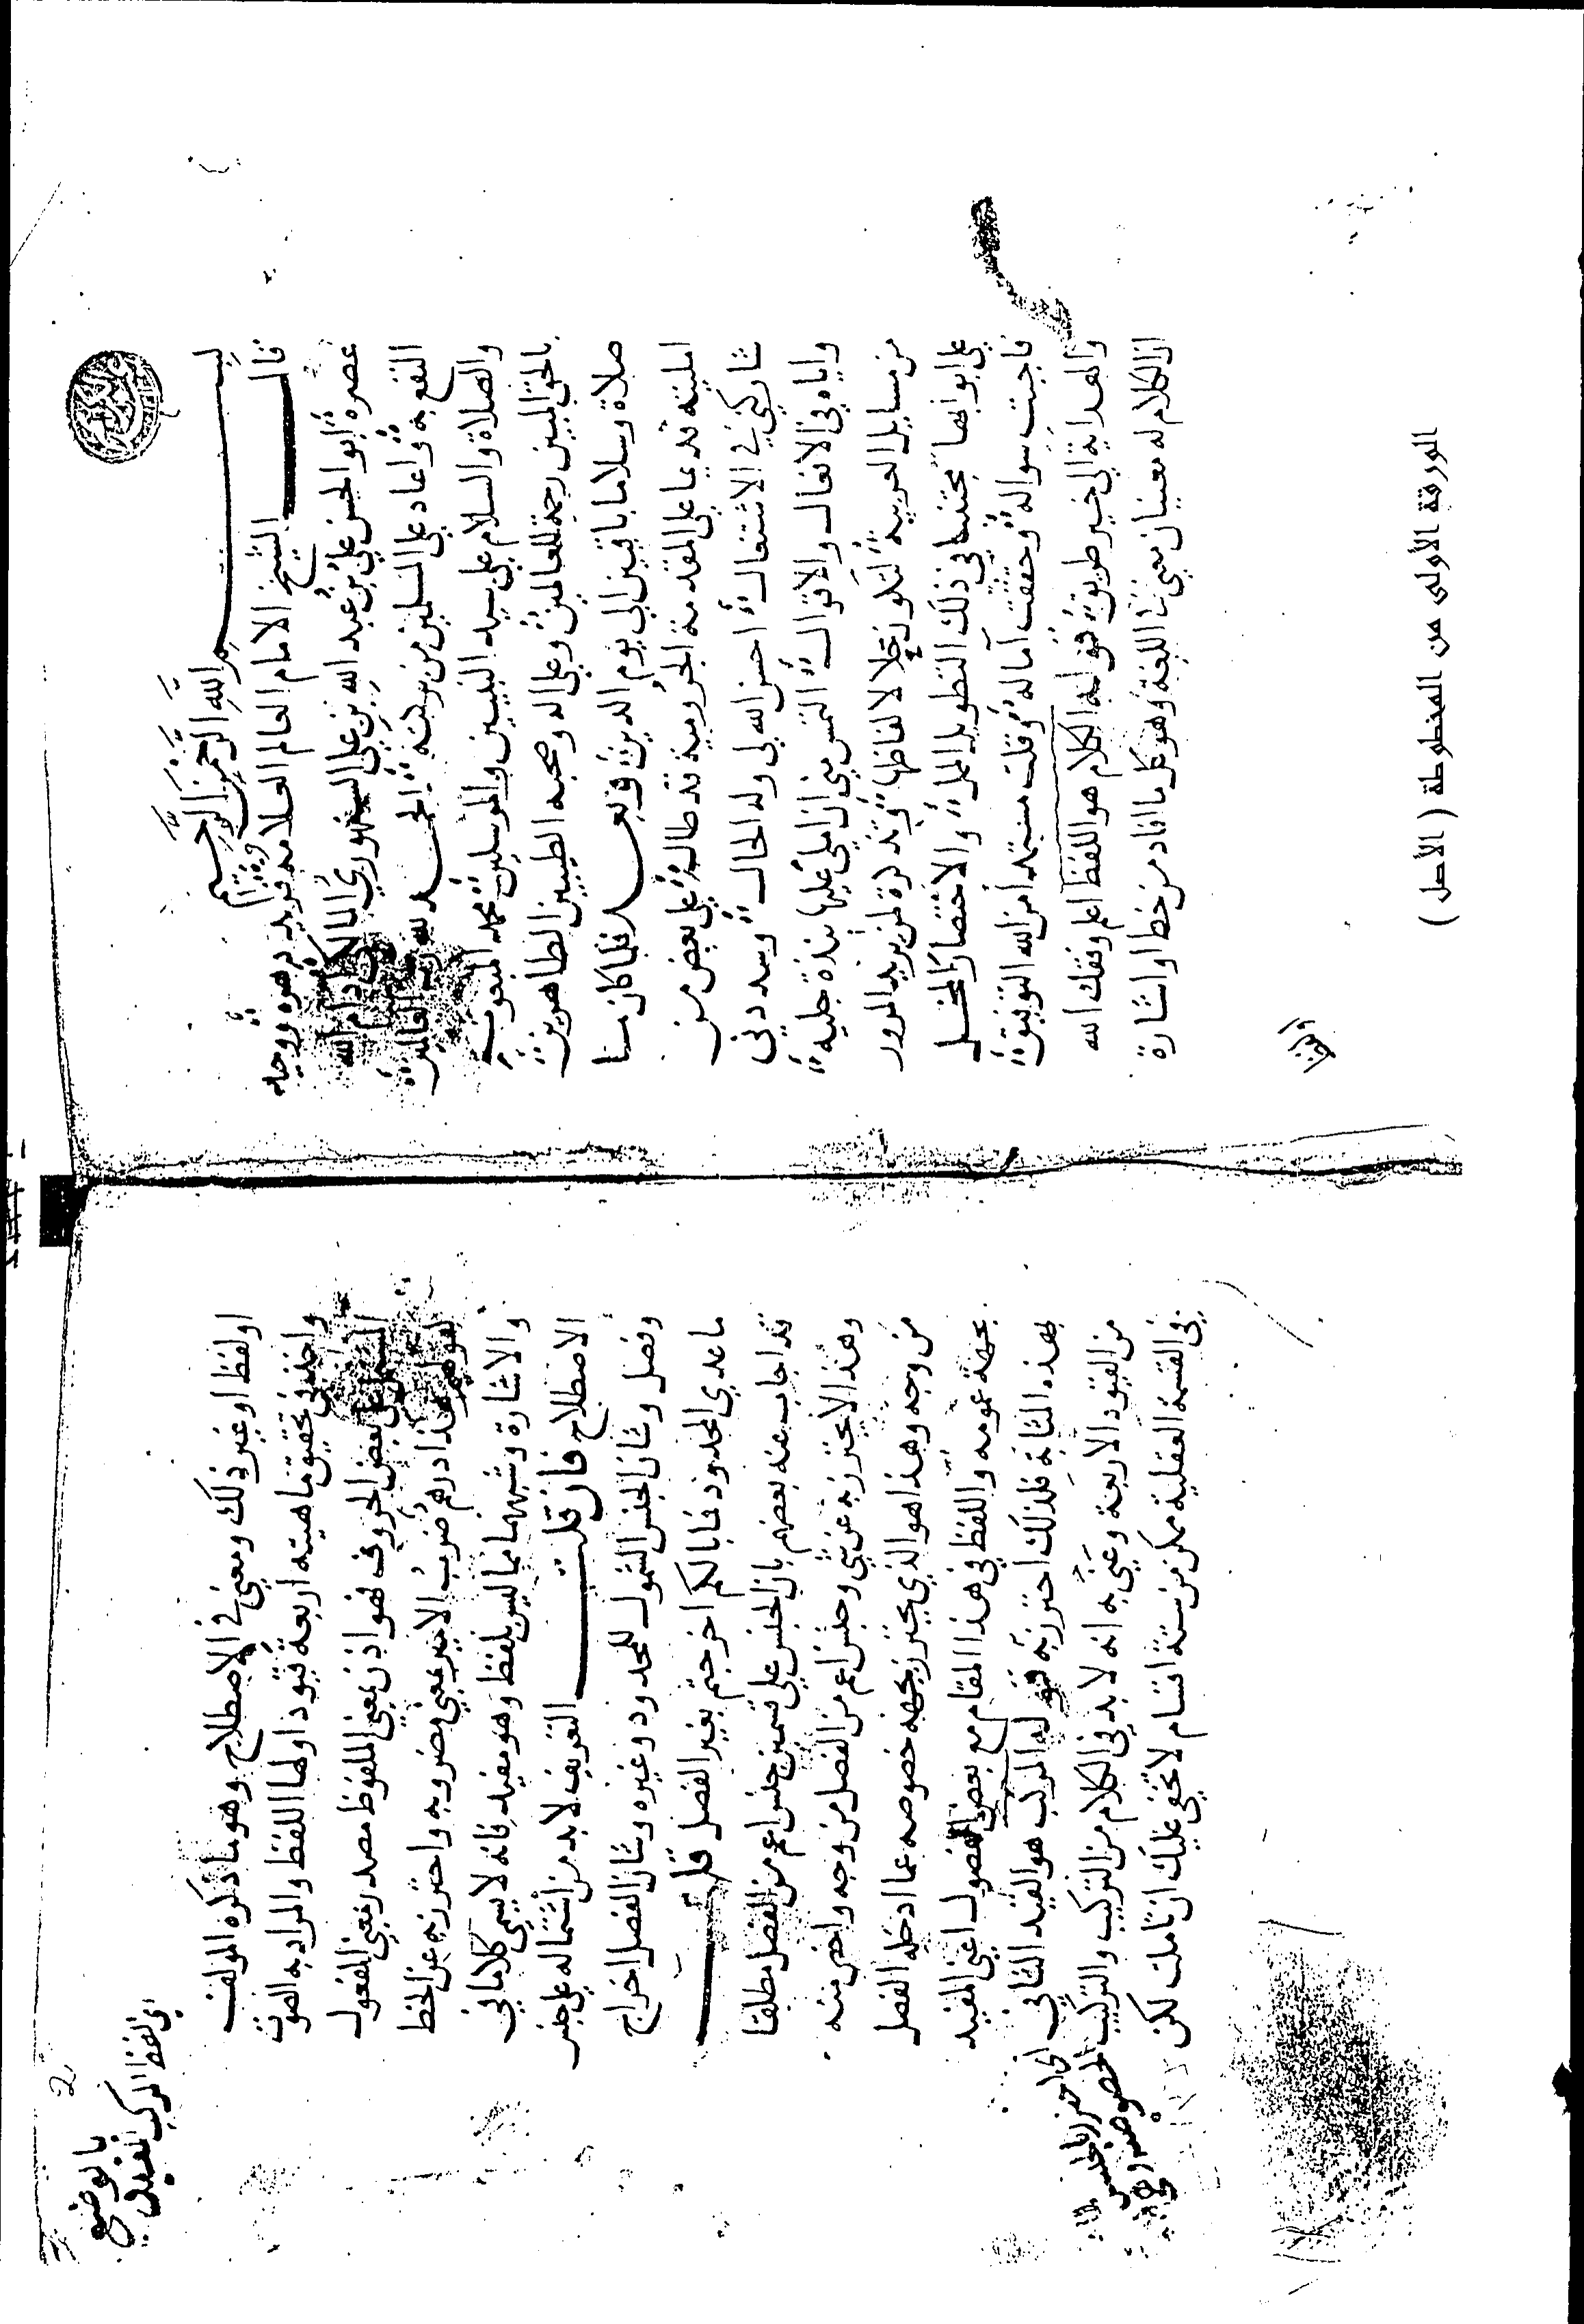 بسم الله الرحمن الرحيم
قال الشيخ الامام العالم العلامة فريد دهره ووحيد
عصره ابو الحسن علي بن عبد الله بن علي السنهوري المالكي ادام الله
النفع به واعاد على المسلمين من بركته الحمد لله رب العالمين
والصلاة والسلام على سيد النبيين والمرسلين محمد المبعوث
بالحق المبين رحمة للعالمين وعلى اله وصحبه الطيبين الطاهرين
صلاة وسلاما باقيين الى يوم الدين وبعد فلما كان ما
امليته قديما على المقدمة الجرومية قد طال على بعض من
شاركني في الاشتغال احسن الله لي وله الحال وسددني
واياه في الافعال والاقوال التمس مني ان املي عليها نبذة جلية
من مسايل العربية لتكون حلا لالفاظها وتذكرة لمن يريد المرور
على ابوابها مجتنبا في ذلك التطويل الممل والاختصار المخل
فاجبت سواله وحققت آماله وقلت مستمدا من الله التوفيق
والهداية الى خير طريق قوله الكلام هو اللفظ اعلم وفقك الله
ان الكلام له معنيان معنى في اللغة وهو كل ما افاد من خط او اشارة
او لفظ او غير ذلك ومعنى في الاصطلاح وهو ما ذكره المولف
واخذ في تحقيق ماهيته اربعة قيود اولها اللفظ والمراد به الصوت
المشتمل على بعض الحروف فهو اذن بمعنى الملفوظ مصدر بمعنى المفعول
كقولهم هذا درهم ضرب الامير بمعنى مضروبه واحترز به عن الخط
والاشارة وشبههما مما ليس بلفظ وهو مفيد فانه لا يسمى كلاما في
الاصطلاح فان قلت التعريف لا بد من اشتماله على جنس
وفصل وشان الجنس الشمول للمحدود وغيره وشان الفصل اخراج
ما عدى المحدود فما بالكم اخرجتم بغير الفصل قلت
قد اجاب عنه بعضهم بان الجنس على قسمين جنس اعم من الفصل مطلقا
وهذا لا يحترز به عن شي وجنس اعم من الفصل من وجه واخص منه
من وجه وهذا هو الذي يحترز بجهة خصوصه عما ادخله الفصل
بجهة عمومه واللفظ في هذا المقام مع بعض الفصول اعني المفيد
بهذه المثابة فلذلك احترز به قوله المركب هو القيد الثاني
من القيود الاربعة وعنى به انه لا بد في الكلام من التركيب والتركيب
في القسمة العقلية ممكن من ستة اقسام لا تخفى عليك ان تاملت لكن
اي اللفظ المركب المفيد
بالوضع
2
اولفظ
الورقة الأولى من المخطوطة ( الأصل )